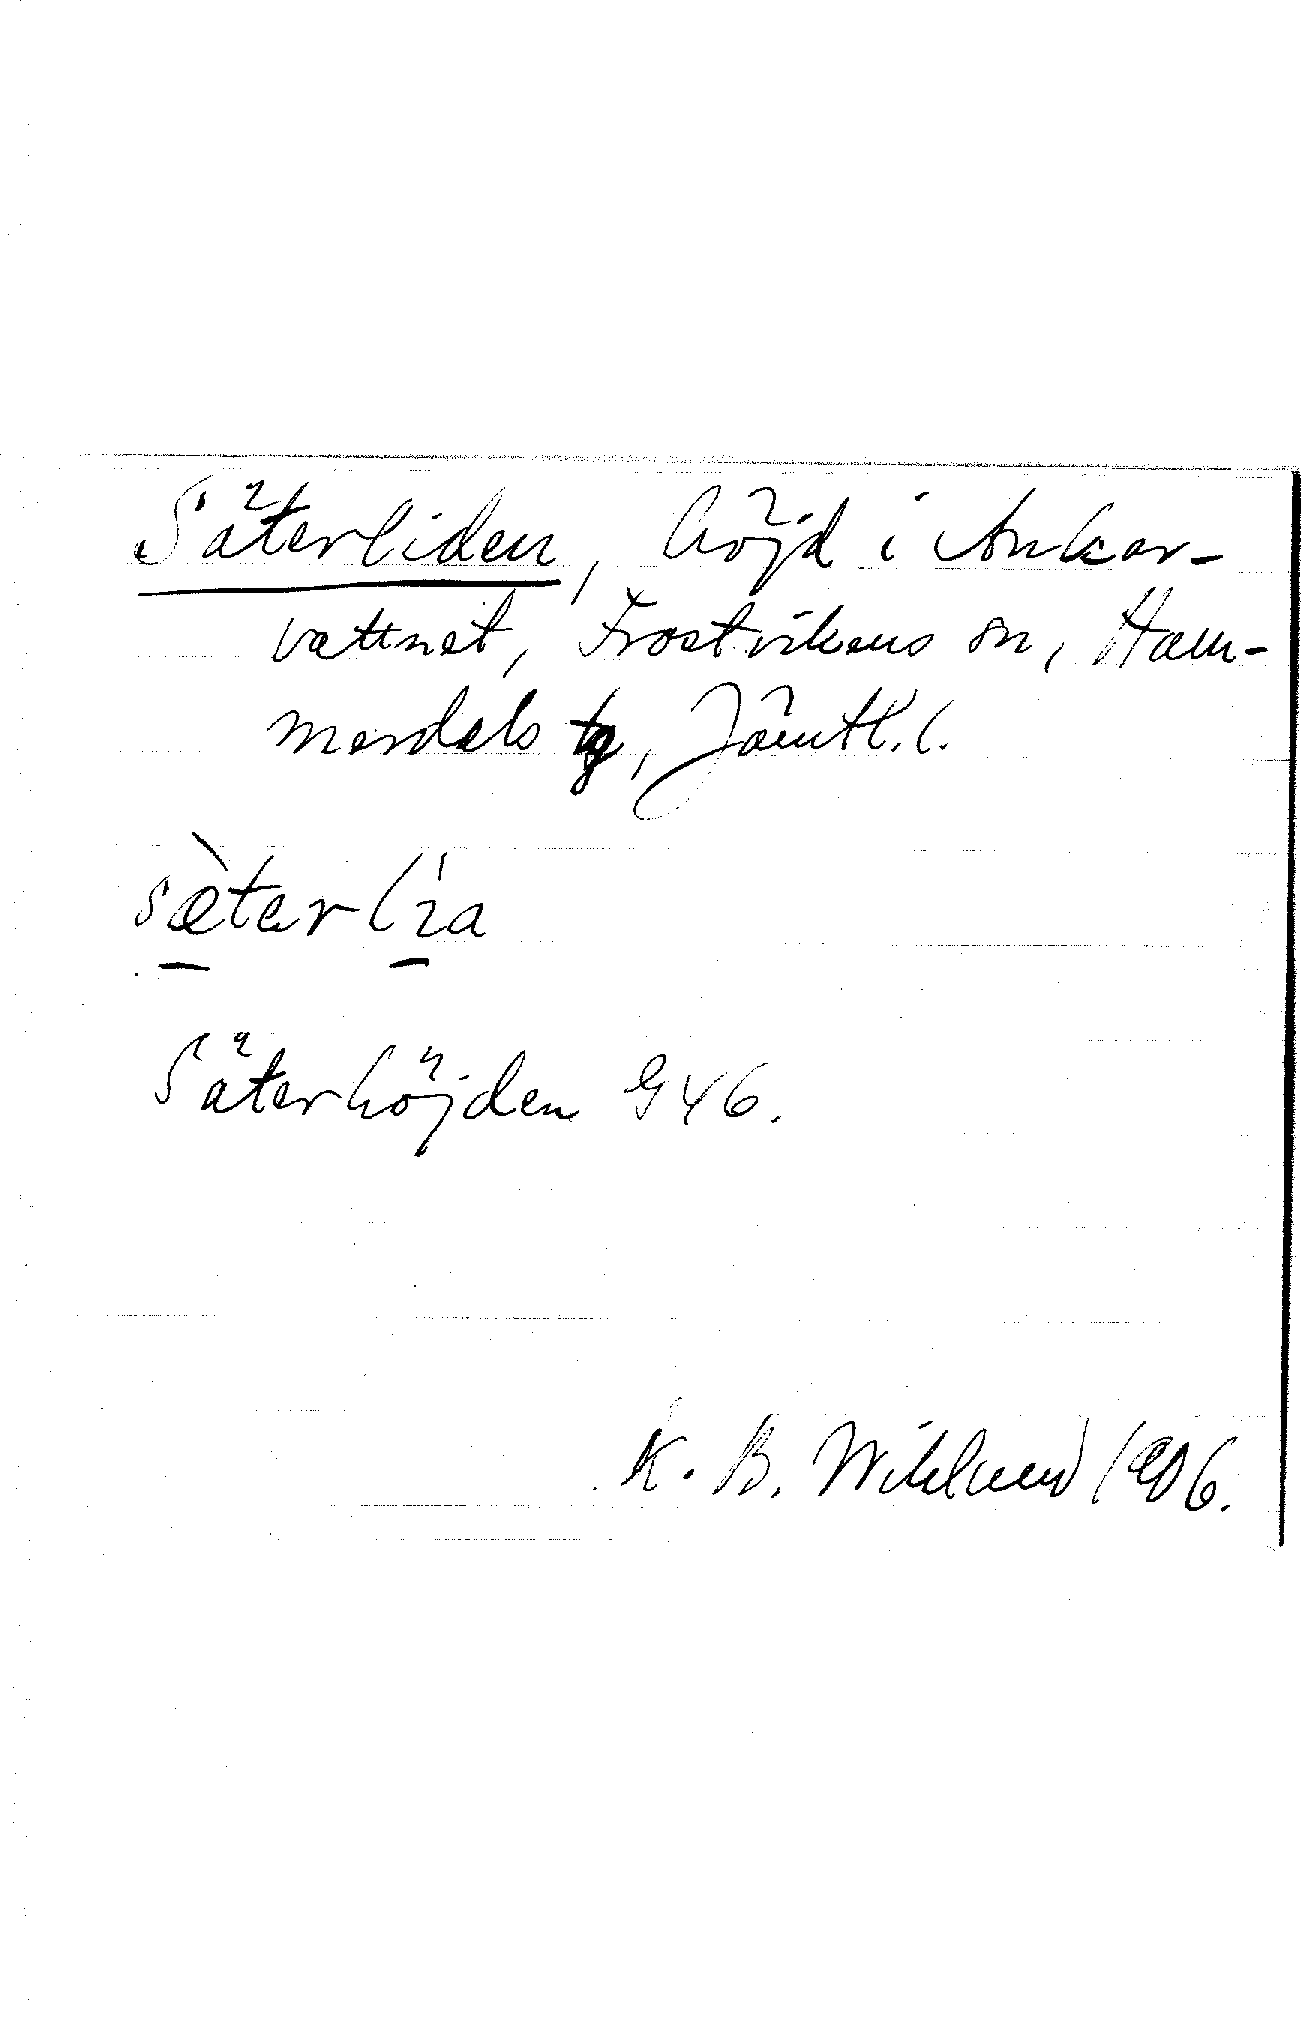 Säterliden, höjd i Ankar-
vattnet, Frostvikens sn, Ham-
merdals tg, Jämtl. l.
sæ̀terlı́a
Säterhöjden G46.
K. B. Wiklund 1906.